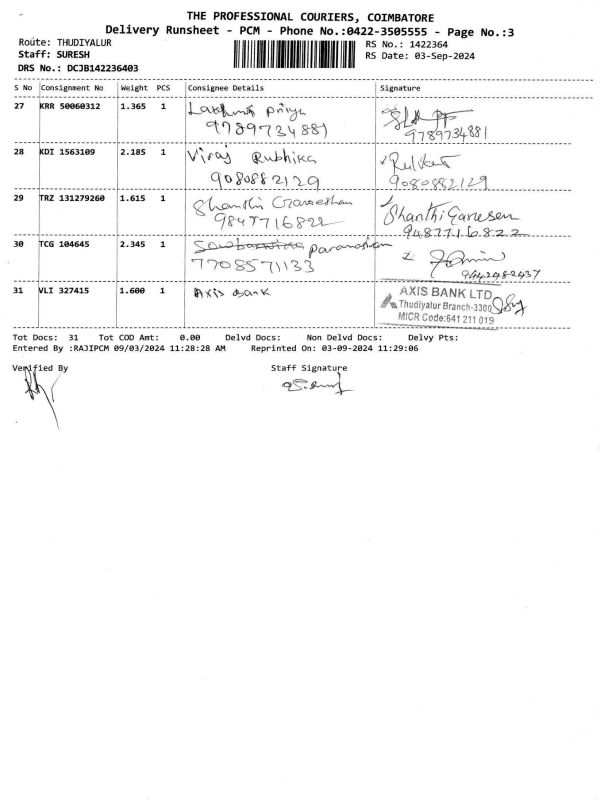 THE PROFESSIONAL COURIERS, COIMBATORE
Delivery Runsheet - PCM - Phone No.:0422-3505555 - Page No.:3
Route: THUDIYALUR RS No.: 1422364
Staff: SURESH RS Date: 03-Sep-2024
DRS No.: DCJB142236403
S No Consignment No Weight PCS Consignee Details Signature
27 KRR 50060312 1.365 1 Lakshmi Priya
9789734881 9789734881
28 KDI 1563109 2.185 1 Viraj Rubhika
9080882129 9080882129
29 TRZ 131279260 1.615 1 Shanthi Ganeshan Shanthi Ganesen
9847716822 9487716822
30 TCG 104645 2.345 1 Paramashan
7708571133 9442482437
31 VLI 327415 1.600 1 Axis Bank AXIS BANK LTD
Thudiyalur Branch-3300
MICR Code:641 211 019
Tot Docs: 31 Tot COD Amt: 0.00 Delvd Docs: Non Delvd Docs: Delvy Pts:
Entered By :RAJIPCM 09/03/2024 11:28:28 AM Reprinted On: 03-09-2024 11:29:06
Verified By Staff Signature